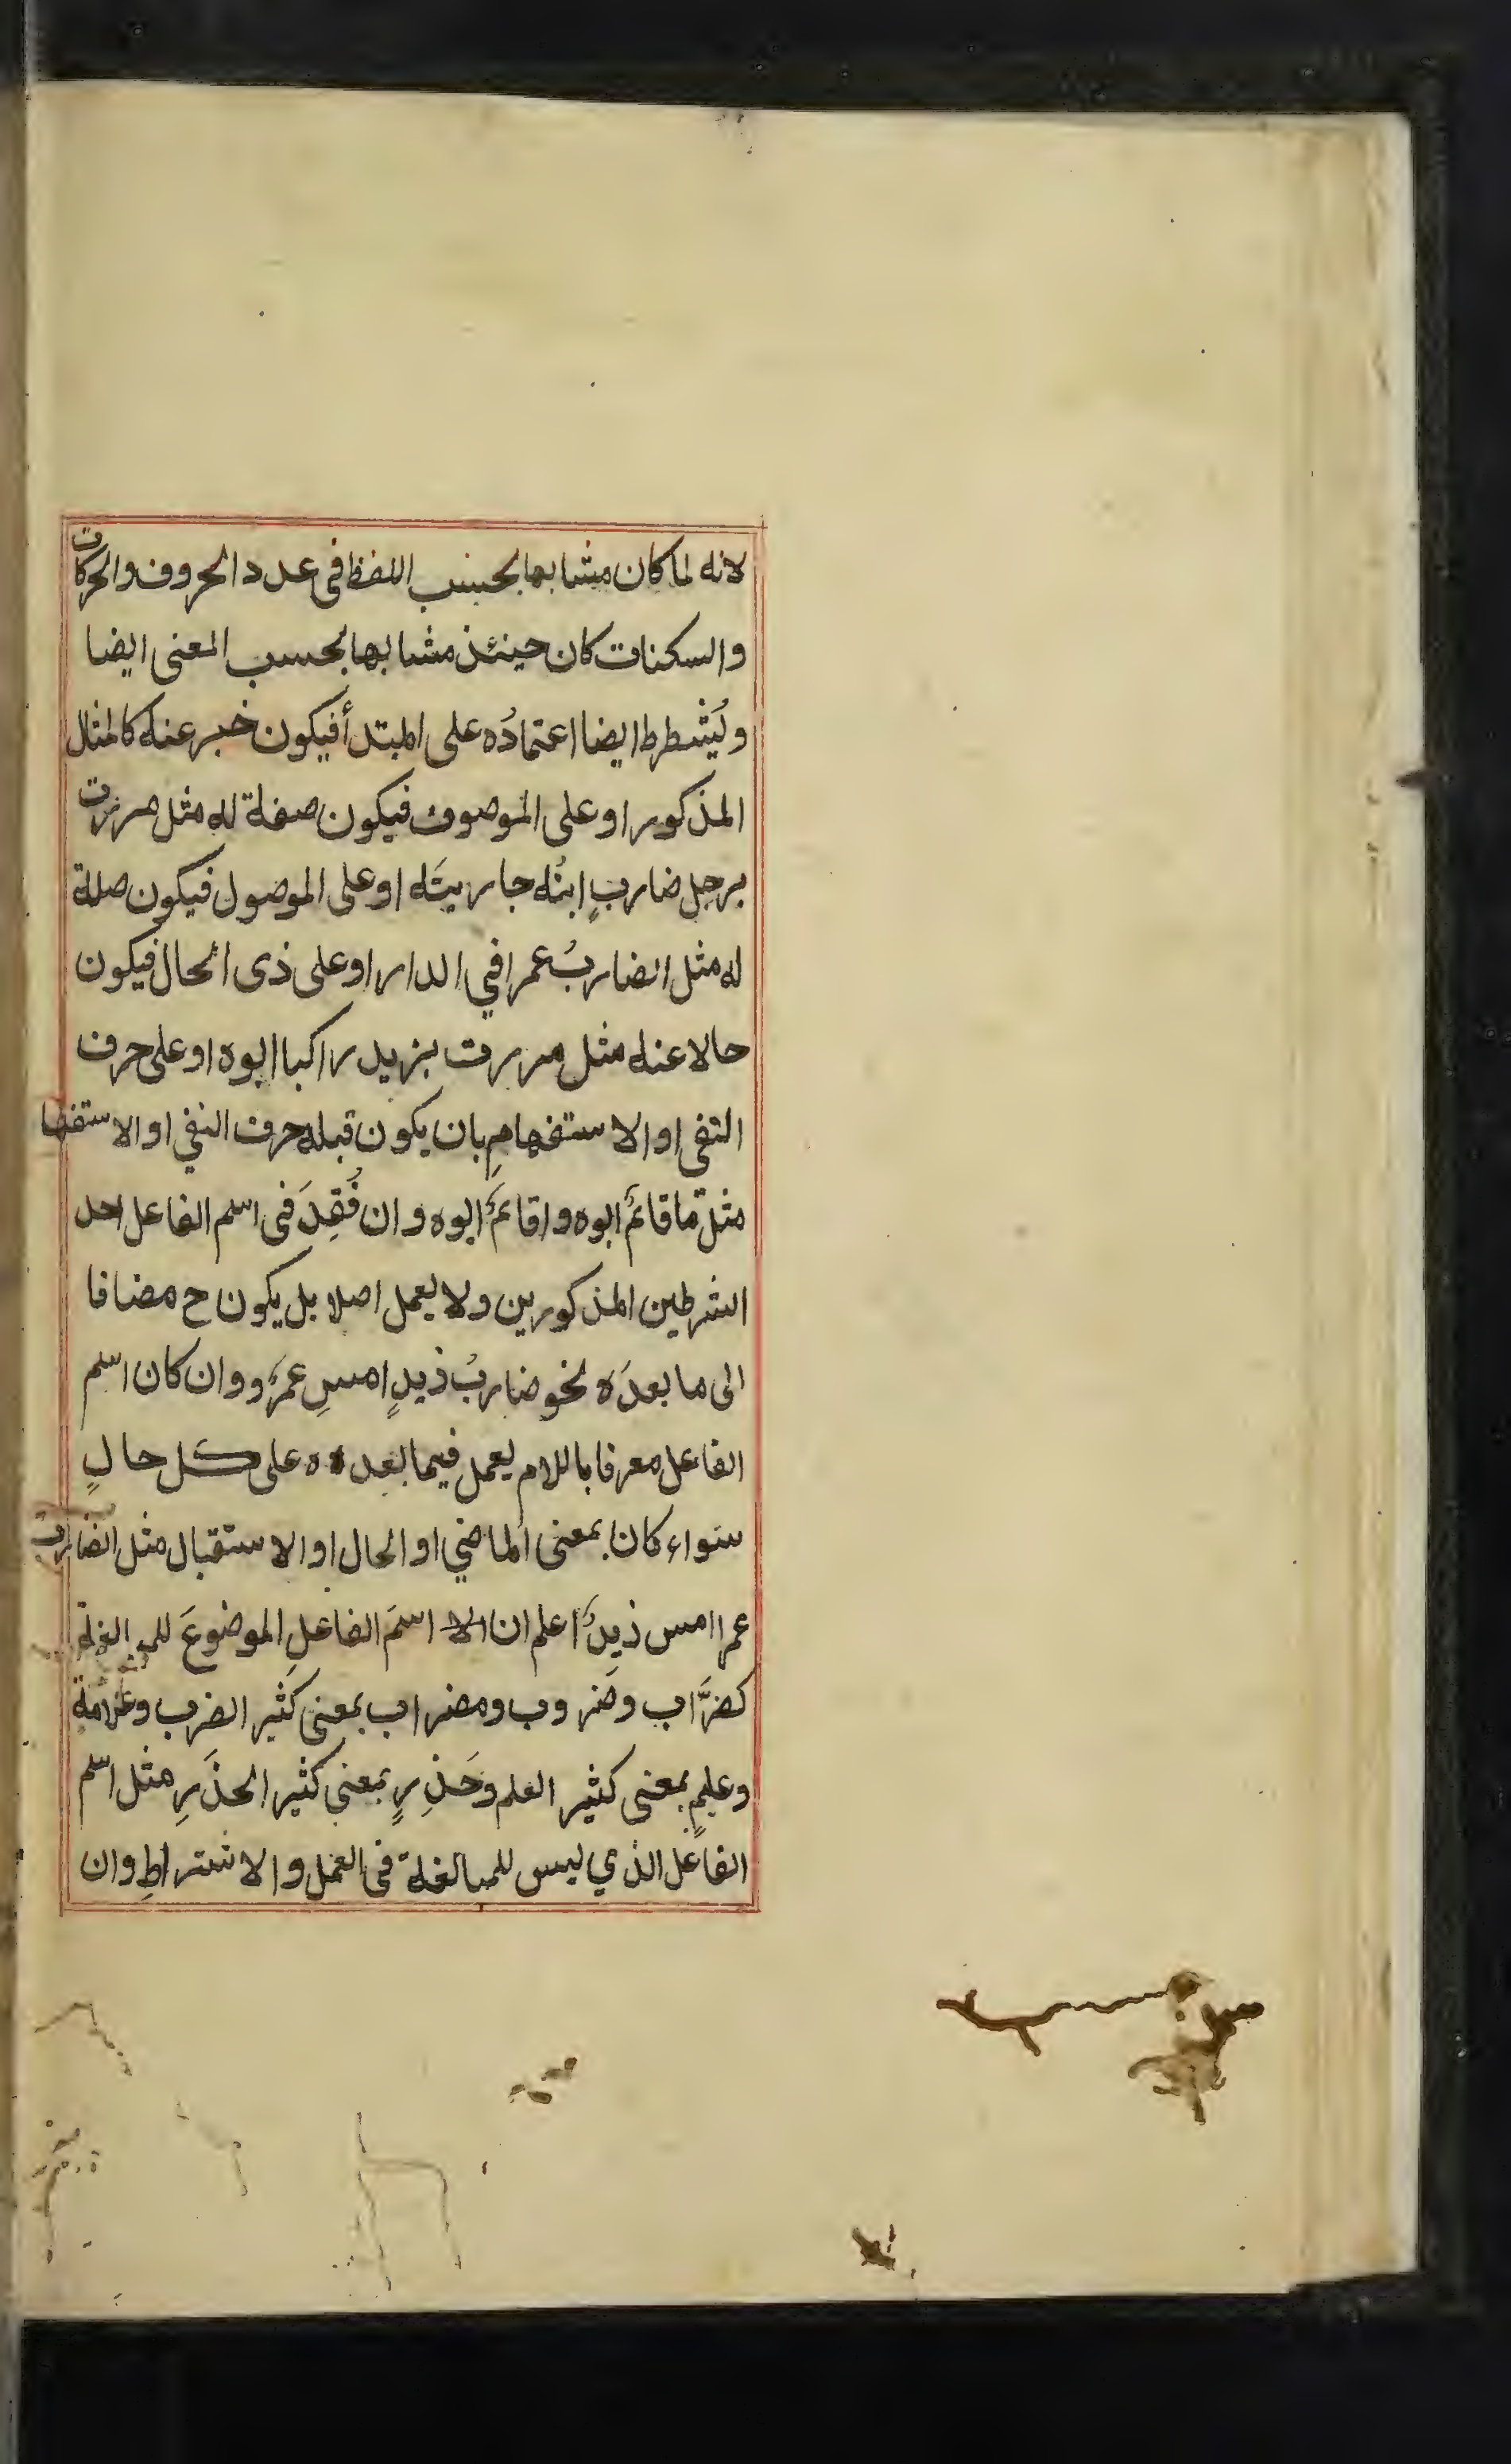 لانه لما كان مشابها بحسب اللفظ فى عدد الحروف والحركات
والسكنات كان حينئذ مشابها بحسب المعنى ايضا
ويُشطرط ايضا اعتمادُه على المبتدأ فيكون خبر عنه كالمثال
المذكور او على الموصوف فيكون صفة له مثل مررت
برجل ضاربٍ ابنُه جاريتَه او على الموصول فيكون صلة
له مثل الضاربُ عمرا في الدار او على ذى الحال فيكون
حالا عنه مثل مررت بزيد راكبا ابوه او على حرف
النفى او الاستفهامِ بان يكون قبله حرف النفي او الاستفها
مثل ما قائمٌ ابوه واقائمٌ ابوه وان فُقِدَ فى اسم الفاعل احد
الشرطين المذكورين ولا يعمل اصلا بل يكون ح مضافا
الى ما بعدَه نحو ضاربُ ذيدٍ امسِ عمرٌو وان كان اسم
الفاعل معرفا باللام يعمل فيما بعده ه على كل حالٍ
سواء كان بمعنى الماضي او الحال او الاستقبال مثل الضارب
عمرا امس ذيدٌ اعلم ان الا اسمَ الفاعلِ الموضوعَ للمبالغة
كضرَّاب وضَروب ومضراب بمعنى كثير الضرب وعلامة
وعليمٍ بمعنى كثير العلم وحَذِرٍ بمعني كثير الحذَرِ مثل اسم
الفاعل الذي ليس للمبالغة فى العمل والاشتراطِ وان